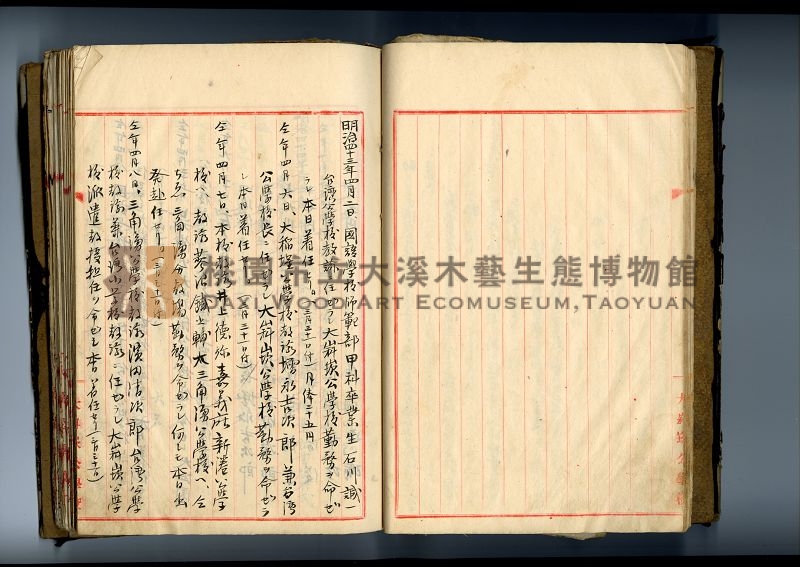 明治四十三年四月二日、國語學校師範部甲科卒業生石川誠一
台湾公學校教諭ニ任セラレ大嵙崁公學校勤務ヲ命セ
ラレ本日着任セリ(三月三十一日付)月俸三十五円
仝年四月六日、大稲埕公學校教諭 永吉次郎兼台湾
公學校長ニ任セラレ大嵙崁公學校勤務ヲ命セラ
レ本日着任セリ(三月三十一日付)
仝年四月七日、本校 井上徳弥嘉義庁新港公學
校ヘ、教諭 治鐵之輔大三角湧公學校ヘ、
三角湧分教場勤務ヲ命セラレ何レモ本日出
発赴任セリ
仝年四月八日、三角湧公學校教諭濱田 次郎台湾公學
校教諭兼台湾小学校教諭ニ任セラレ大嵙崁公學
校派遣教授担任ヲ命セラレ本日着任セリ
桃園市立大溪木藝生態博物館
Daxi Wood Art Ecomuseum,Taoyuan
大嵙崁公學校
大嵙崁公學校